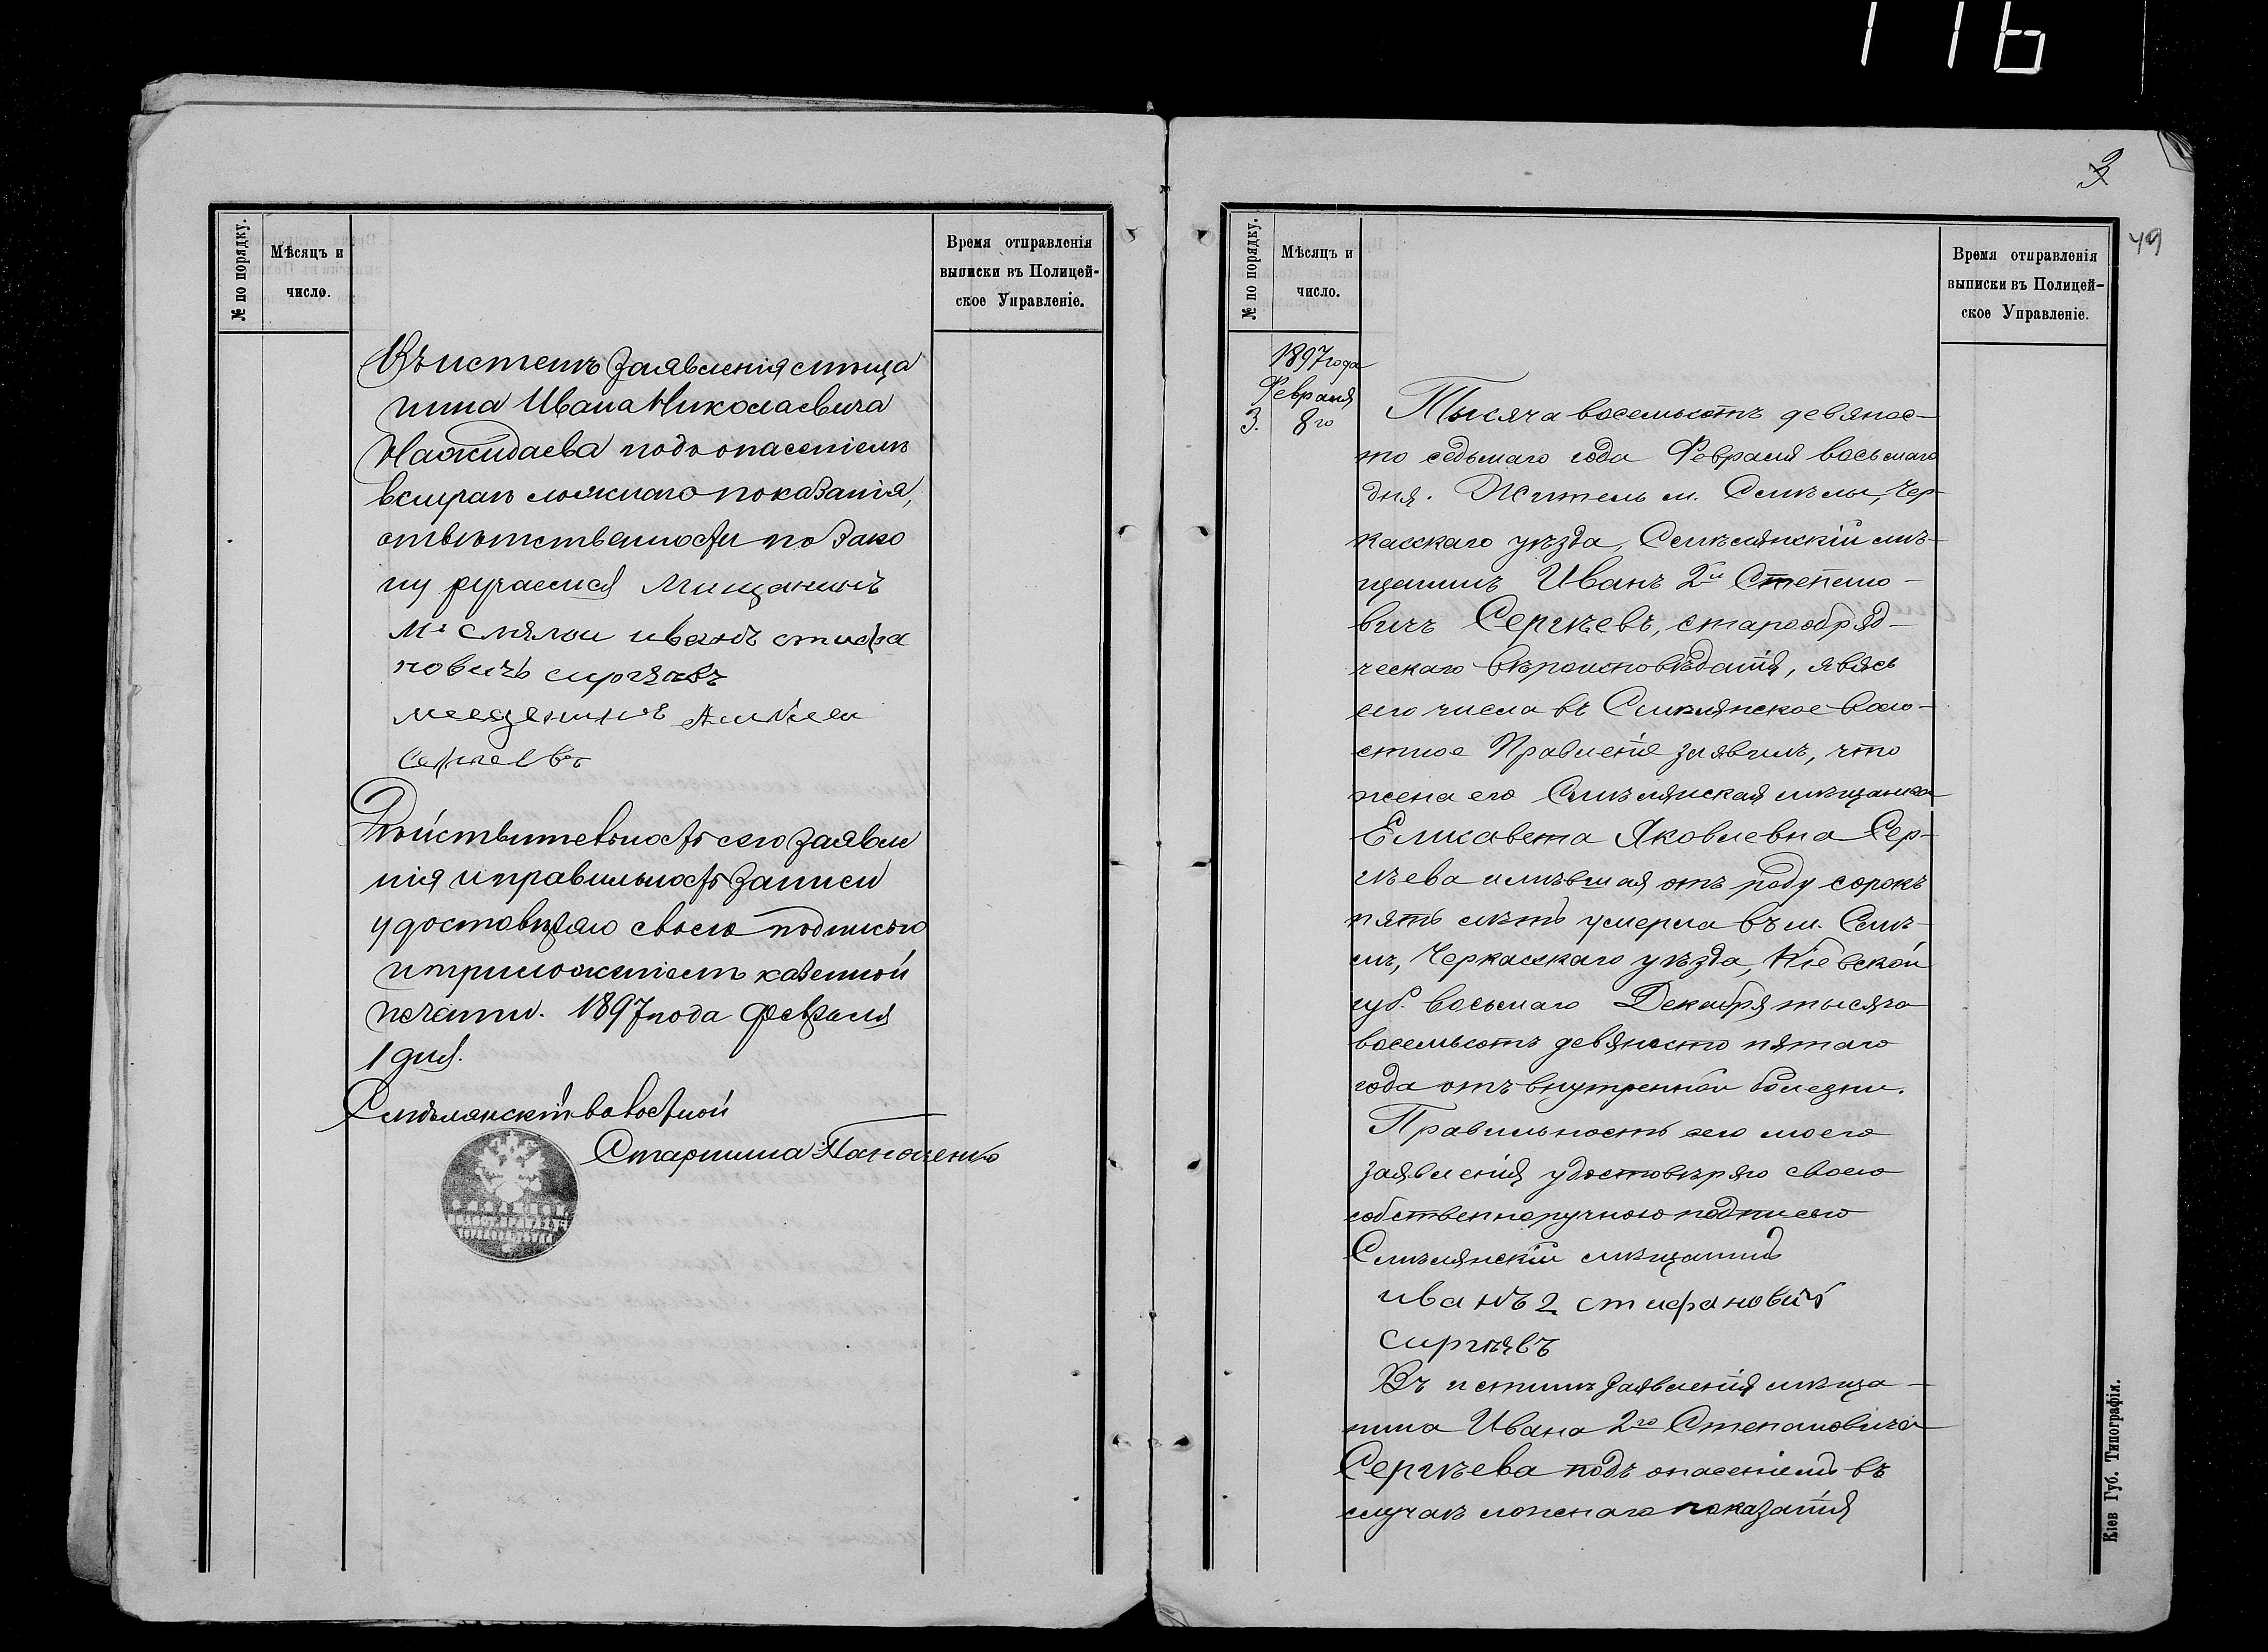 116
№ по порядку.
Мѣсяцъ и
число.
Время отправленія
выписки въ Полицей-
ское Управленіе.
Въ истенѣ заявленія мѣща
нина Ивана Николаевича
Нажидаева подъ опасеніемъ
вслучаѣ ложнаго показанія,
ответственности по зако
ну ручаемся Мищанинъ
М. Смялои иванъ стифа
новичъ сиргѣявъ
мещенинъ
Сергеевъ
Дѣйствительность сего заявле
нія и правильность записи
удостовѣряю своею подписью
и приложеніемъ казенной
печати. 1897 года февраля
1 дня.
Смѣлянскій волостной
Старшина Паноченко
3
49
№ по порядку.
Мѣсяцъ и
число.
Время отправленія
выписки въ Полицей-
ское Управленіе.
1897 года
Февраля
3. 8го
Тысяча восемьсотъ девянос-
то седьмаго года Февраля восьмаго
дня. Житель м. Смѣлы, Чер-
касскаго уѣзда, Смѣлянскій мѣ-
щанинъ Иванъ 2й Степано-
вичъ Сергѣевъ, старообряд-
ческаго вѣроисповѣданія, явясь
сего числа въ Смѣлянское Воло-
стное Правленіе заявилъ, что
жена его Смѣлянская мѣщанка
Елисавета Яковлевна Сер-
гѣева имѣвшая отъ роду сорокъ
пять лѣтъ умерла въ м. Смѣ-
лѣ, Черкасскаго уѣзда, Кіевской
губ. восьмаго Декабря тысяча
восемьсотъ девяносто пятаго
года отъ внутренной болезни.
Правильность сего моего
заявленія удостовѣряю своею
собственноручною подписью
Смѣлянскій мѣщанинъ
иванъ 2 стифановичъ
сиргѣявъ
Въ истинѣ заявленія мѣща-
нина Ивана 2го Степановича
Сергѣева подъ опасеніемъ въ
случаѣ ложнаго показанія
Кіев Губ. Типографія.